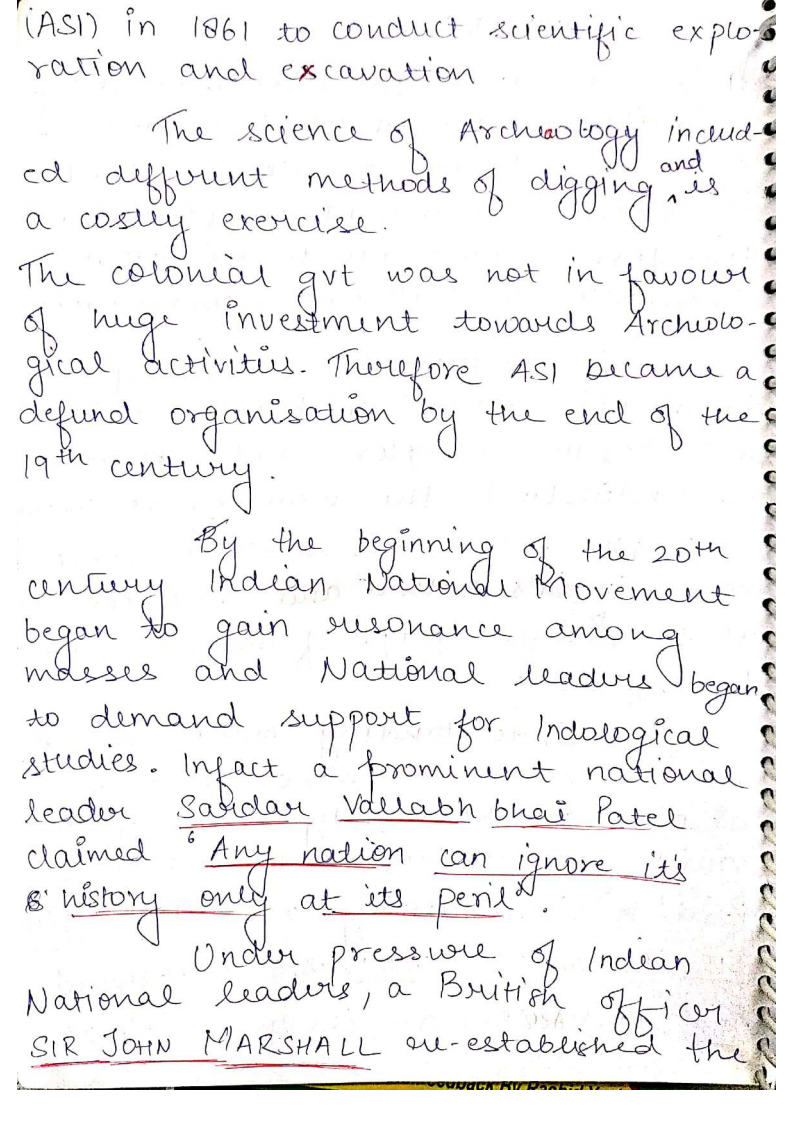 (ASI) in 1861 to conduct scientific explo-
ration and excavation
The science of Archaology includ-
ed different methods of digging and is
a costly exercise.
The colonial gvt was not in favour
of huge investment towards Archeolo-
gical activities. Therefore ASI became a
defund organisation by the end of the
19th century.
By the beginning of the 20th
century Indian National Movement
began to gain resonance among
masses and National leaders began
to demand support for Indological
studies. Infact a prominent national
leader Sardar Vallabh bhai Patel
claimed "Any nation can ignore it's
history only at its peril".
Under pressure of Indian
National leaders, a British officer
SIR JOHN MARSHALL re-established the